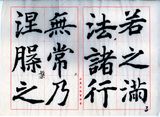 若之滿
法諸行
無常乃
涅臊之